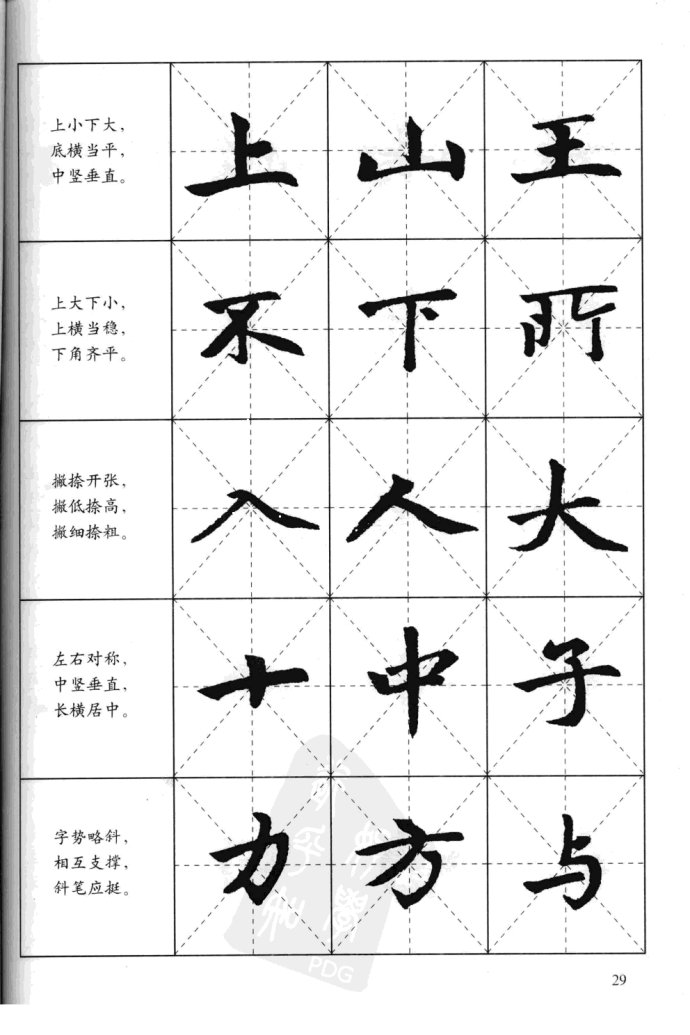 上小下大，
底横当平，
中竖垂直。
上 山 王
上大下小，
上横当稳，
下角齐平。
不 下 所
撇捺开张，
撇低捺高，
撇细捺粗。
入 人 大
左右对称，
中竖垂直，
长横居中。
十 中 子
字势略斜，
相互支撑，
斜笔应挺。
力 方 与
PDG
29